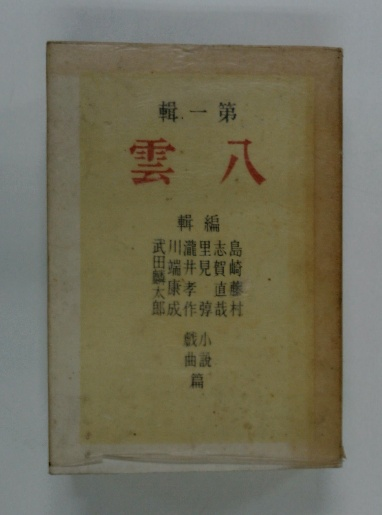 第一輯
八雲
編輯
島崎藤村
志賀直哉
里見弴
瀧井孝作
川端康成
武田麟太郎
小說
戲曲
篇